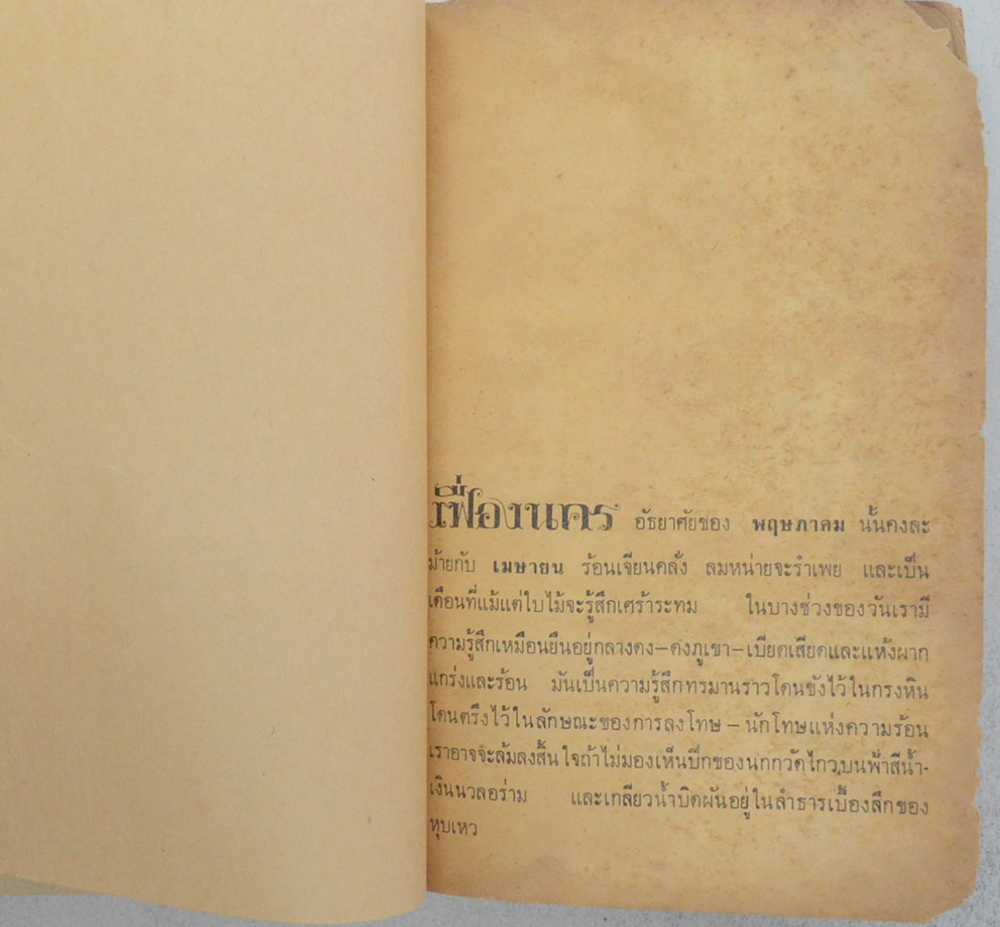 เฟื่องนคร อัธยาศัยของ พฤษภาคม นั้นคงละ
ม้ายกับ เมษายน ร้อนเจียนคลั่ง ลมหน่ายจะรำเพย และเป็น
เดือนที่แม้แต่ใบไม้จะรู้สึกเศร้าระทม ในบางช่วงของวันเรามี
ความรู้สึกเหมือนยืนอยู่กลางดง–ดงภูเขา–เบียดเสียดและแห้งผาก
แกร่งและร้อน มันเป็นความรู้สึกทรมานราวโดนขังไว้ในกรงหิน
โดนตรึงไว้ในลักษณะของการลงโทษ – นักโทษแห่งความร้อน
เราอาจจะล้มลงสิ้นใจถ้าไม่มองเห็นปีกของนกกวัดไกว,บนฟ้าสีน้ำ-
เงินนวลอร่าม และเกลียวน้ำบิดผันอยู่ในลำธารเบื้องลึกของ
หุบเหว